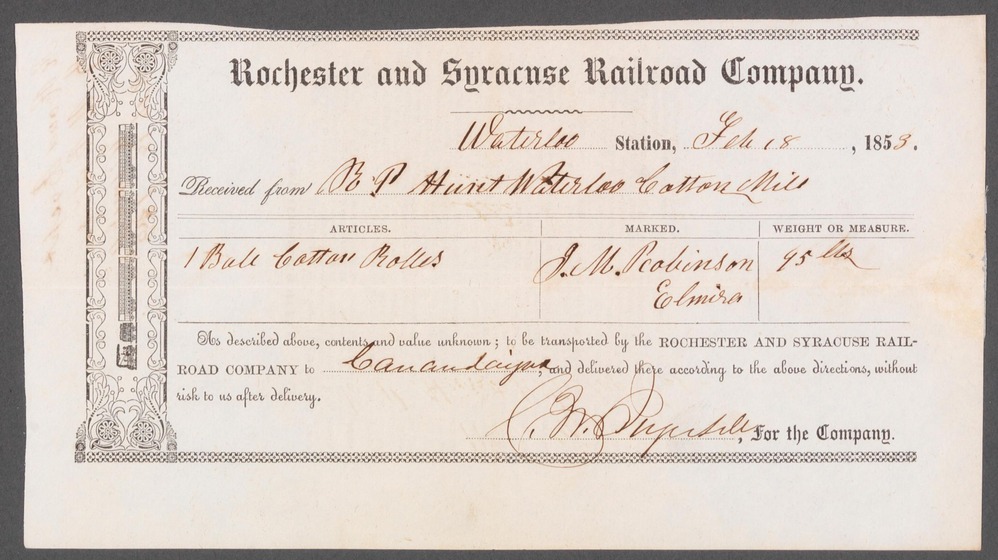 Rochester and Syracuse Railroad Company.
Waterloo Station, Feb 18, 1853.
Received from R P Hunt Waterloo Cotton Mill
ARTICLES. MARKED. WEIGHT OR MEASURE.
1 Bale Cotton Rolls J. M. Robinson 95 lbs
Elmira
As described above, contents and value unknown; to be transported by the ROCHESTER AND SYRACUSE RAIL-
ROAD COMPANY to Canandaigua, and delivered there according to the above directions, without
risk to us after delivery.
C. W. , For the Company.